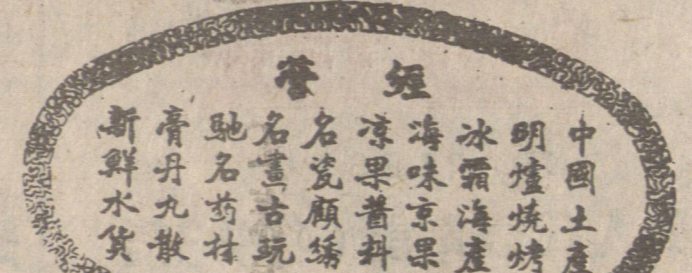 經營
中國土產
明爐燒烤
冰霜海產
海味京果
凉果醬料
名瓷顧綉
名畫古玩
馳名葯材
膏丹丸散
新鮮水貨